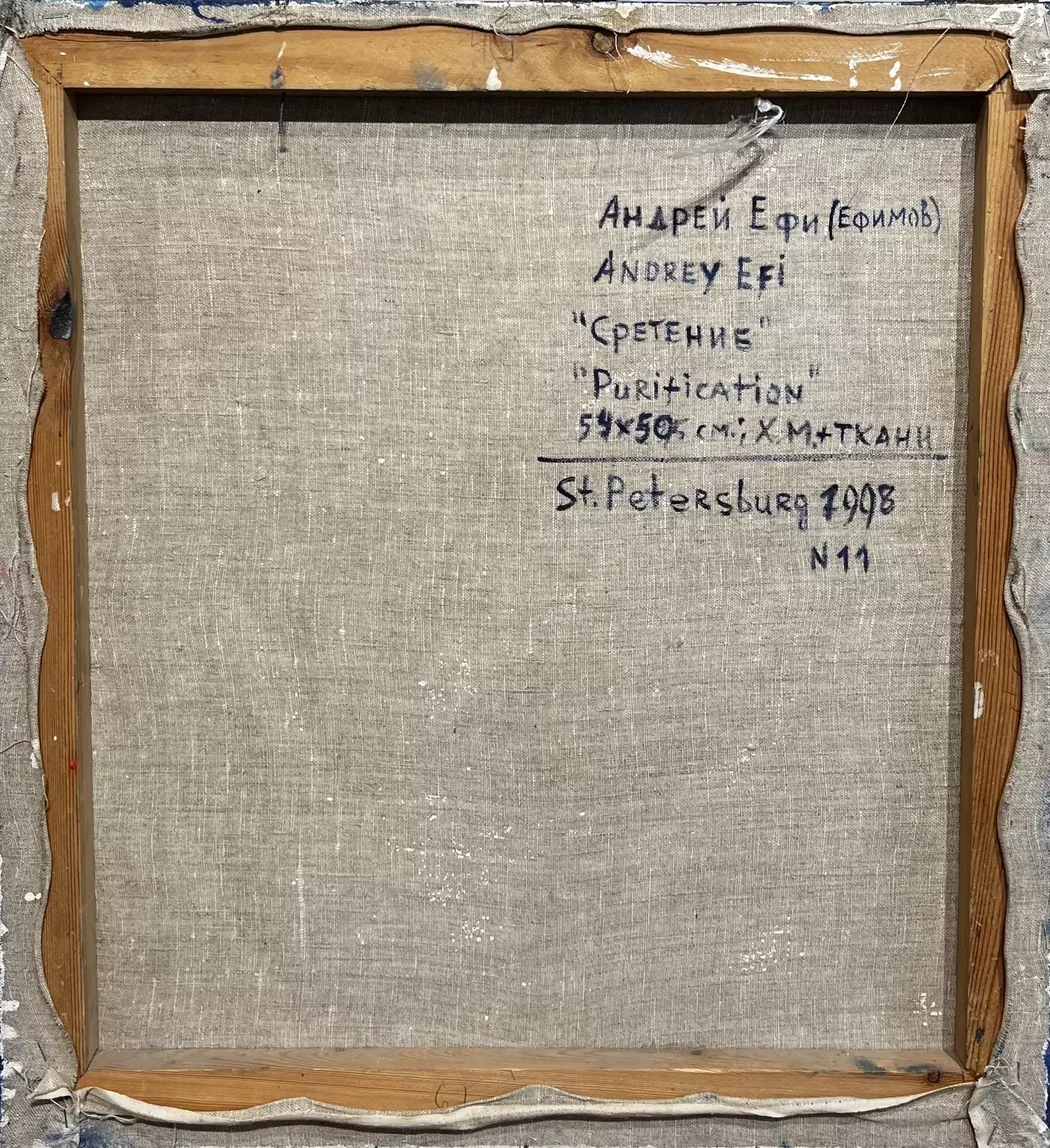 Андрей Ефи (Ефимов)
Andrey Efi
"Сретение"
"Purification"
54х50 см.; Х.М.+ткани
St. Petersburg 1998
N 11